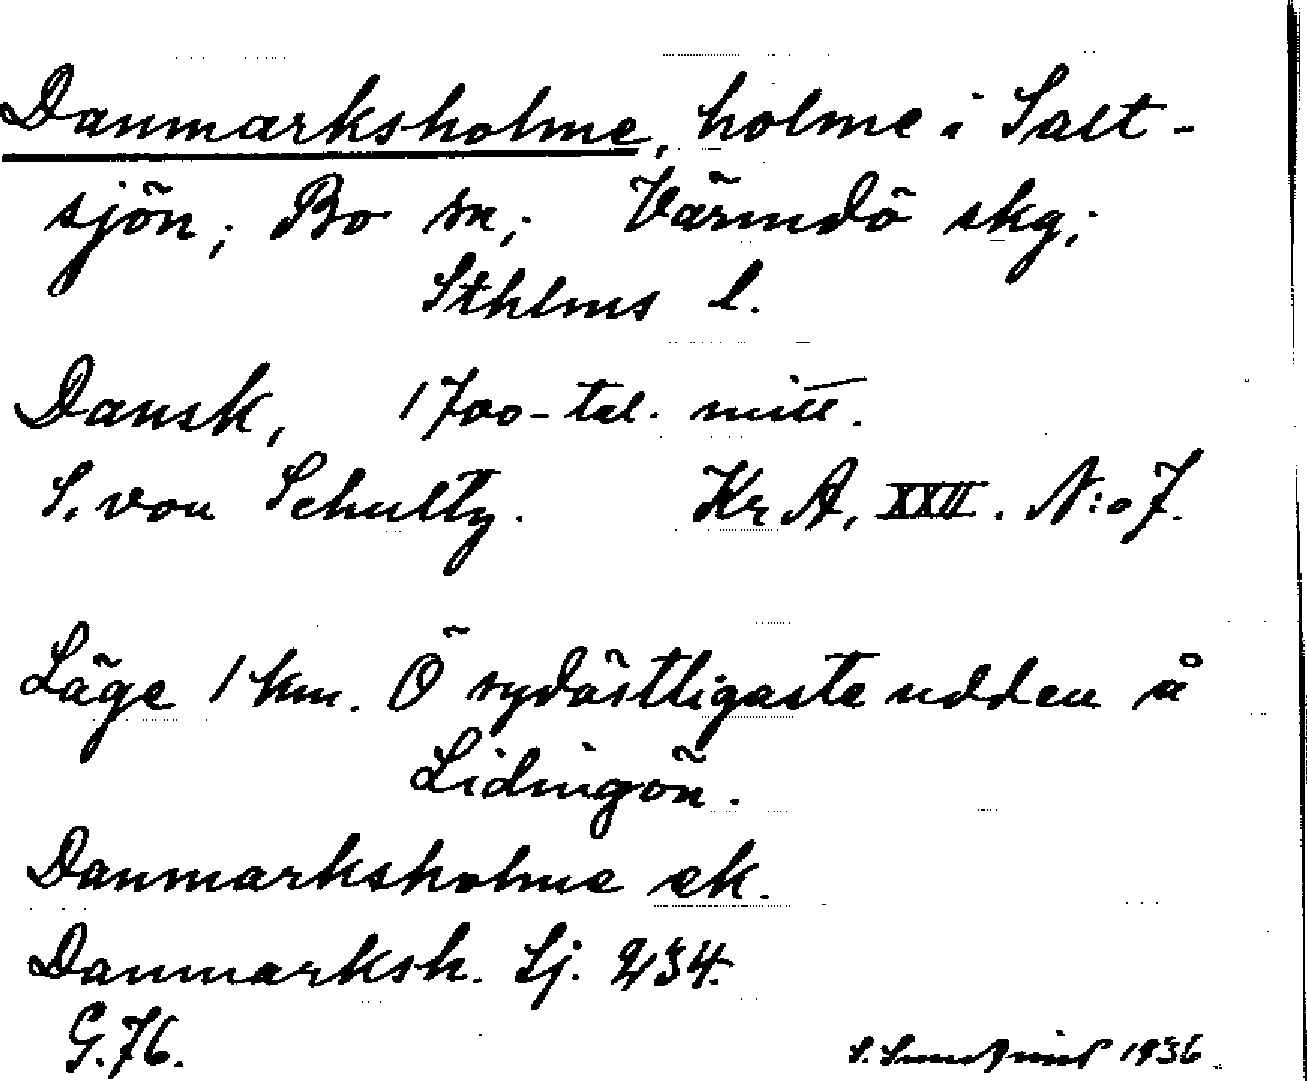 Danmarksholme, holme i Salt-
sjön; Bo sn; Värmdö skg;
Sthlms l.
Dansk, 1700-tal. mitt.
S. von Schultz. Kr A, XXII. N:o 7.
Läge 1 km. Ö sydöstligaste udden å
Lidingön.
Danmarksholme ek.
Danmarksh. Sj. 234.
G. 76.
S. 1936